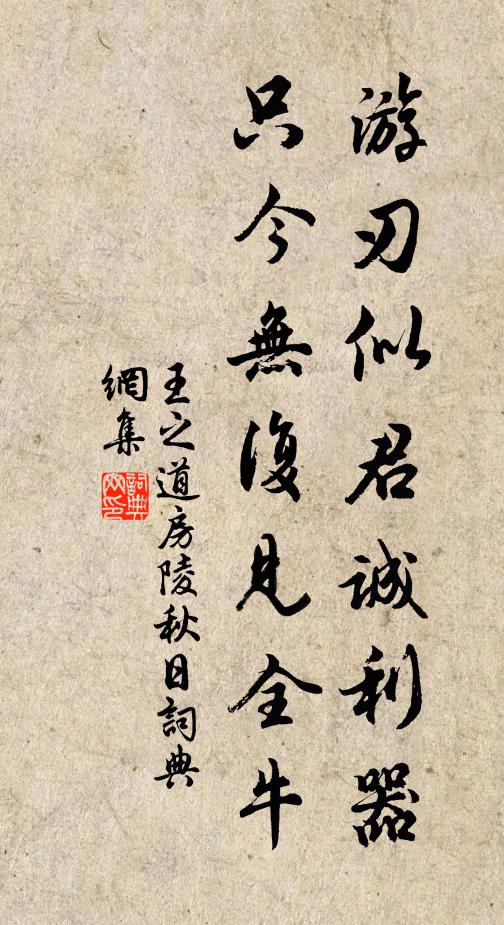 游刃似君誠利器
只今無復見全牛
王之道房陵秋日詞典
網集
詞典
网印